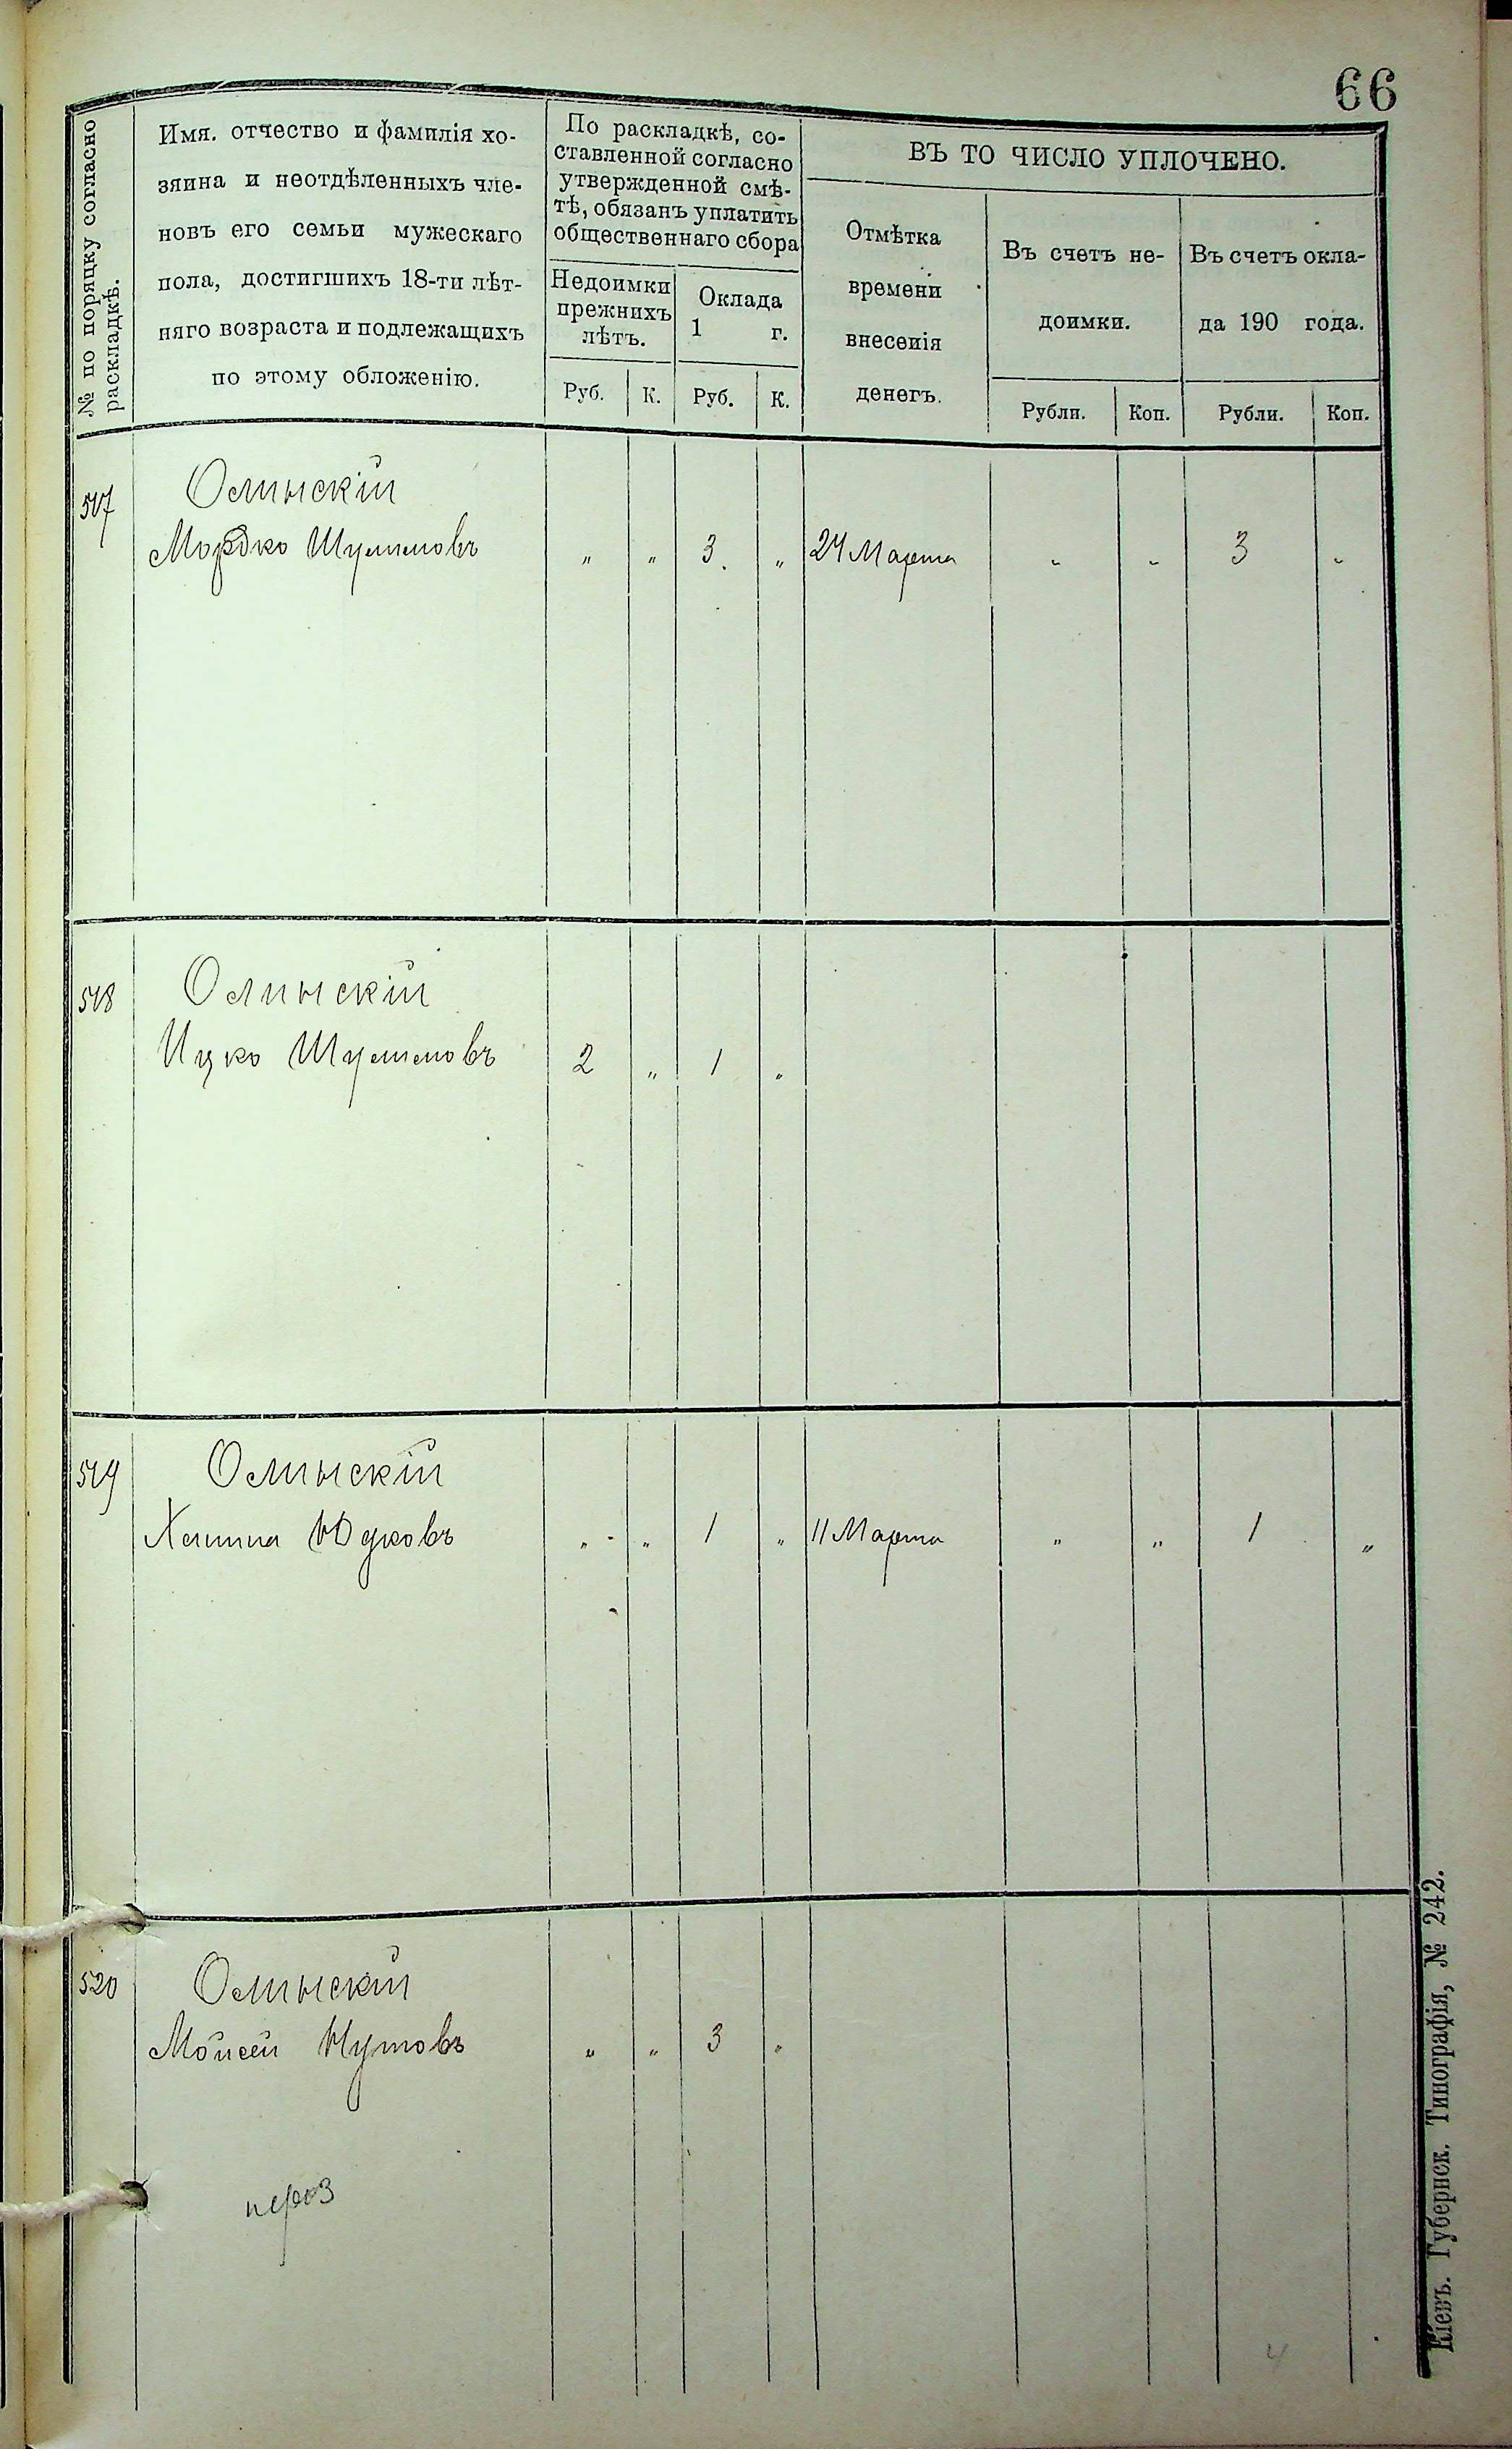 66
№ по порядку согласно
раскладкѣ.
Имя. отчество и фамилія хо-
зяина и неотдѣленныхъ чле-
новъ его семьи мужескаго
пола, достигшихъ 18-ти лѣт-
няго возраста и подлежащихъ
по этому обложенію.
По раскладкѣ, со-
ставленной согласно
утвержденной смѣ-
тѣ, обязанъ уплатить
общественнаго сбора
Недоимки
прежнихъ
лѣтъ.
Руб. К.
Оклада
1 г.
Руб. К.
ВЪ ТО ЧИСЛО УПЛОЧЕНО.
Отмѣтка
времени
внесенія
денегъ.
Въ счетъ не-
доимки.
Рубли. Коп.
Въ счетъ окла-
да 190 года.
Рубли. Коп.
517 Олинскій
Мордко Шулимовъ " " 3. " 24 Марта " " 3 "
518 Олинскій
Ицко Шулимовъ 2 " 1 "
519 Олинскій
Ханина Юдковъ " " 1 " 11 Марта " " 1 "
520 Олинскій
Мойсей Нутовъ " " 3 "
4
Кіевъ. Губернск. Типографія, № 242.